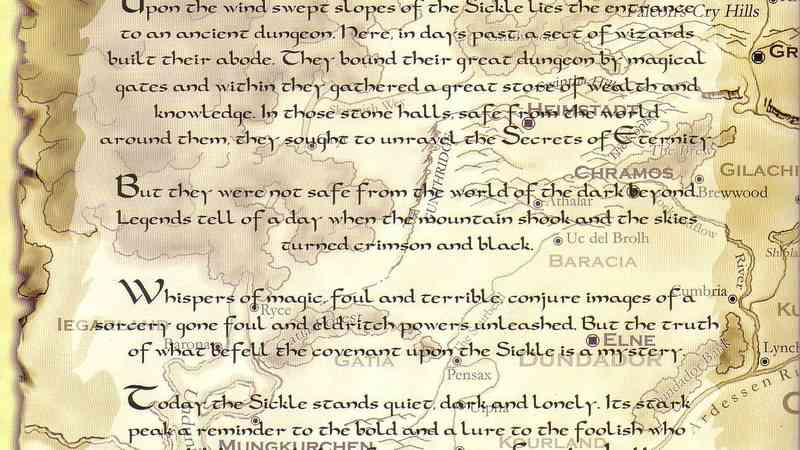 Upon the wind swept slopes of the Sickle lies the entrance
Falcon's Cry Hills
to an ancient dungeon. Here, in days past, a sect of wizards
built their abode. They bound their great dungeon by magical
gates and within they gathered a great store of wealth and
knowledge. In those stone halls, safe from the world
Heimstadt
around them, they sought to unravel the Secrets of Eternity.
Chramos
Gilachi
But they were not safe from the world of the dark beyond.
Brewwood
Athalar
Legends tell of a day when the mountain shook and the skies
turned crimson and black.
Uc del Brolh
Baracia
River
Whispers of magic, foul and terrible, conjure images of a
Cumbria
Ryce
sorcery gone foul and eldritch powers unleashed. But the truth
Elne
of what befell the covenant upon the Sickle is a mystery.
Gatia
Dundador
Lynch
Pensax
Ardessen
Today the Sickle stands quiet, dark and lonely. Its stark
Ulpha
peak a reminder to the bold and a lure to the foolish who
Mungkurchen
Kourland